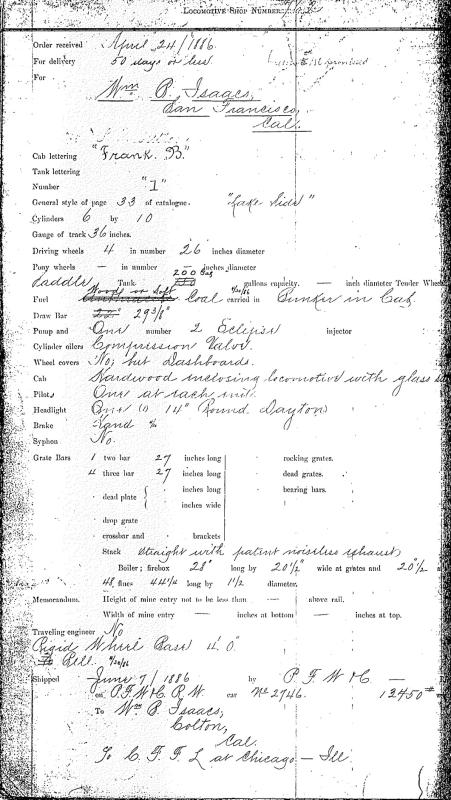 LOCOMOTIVE SHOP NUMBER
Order received April 24/1886
For delivery 50 days or less promised
For Wm B. Isaacs,
San Francisco,
Cal.
Cab lettering "Frank. B."
Tank lettering
Number "1"
General style of page 33 of catalogue. "Lake Side"
Cylinders 6 by 10
Gauge of track 36 inches.
Driving wheels 4 in number 26 inches diameter
Pony wheels — in number — inches diameter
Saddle Tank 200 gallons capacity. — inch diameter Tender Wheels
Fuel Wood or Soft Coal carried in Bunker in Cab
Draw Bar 29 3/8"
Pump and One number 2 Eclipse injector
Cylinder oilers Compression Valve.
Wheel covers No, but Dashboards.
Cab Hardwood inclosing locomotive with glass
Pilots One at each end.
Headlight One (1) 14" Round Dayton
Brake Hand
Syphon No.
Grate Bars 1 two bar 27 inches long rocking grates.
4 three bar 27 inches long dead grates.
dead plate { inches long bearing bars.
inches wide
drop grate
crossbar and brackets
Stack Straight with patent noiseless exhaust,
Boiler; firebox 28" long by 20 1/2" wide at grates and 20 1/2"
48 flues 44 1/4 long by 1 1/2 diameter.
Memorandum. Height of mine entry not to be less than — above rail.
Width of mine entry — inches at bottom — inches at top.
Traveling engineer No
Rigid Wheel Base 4' 0"
Bell.
Shipped June 7/1886 by P. F. W & C —
on P. F. W & C. R. W. car No 2746. 12450#
To Wm B. Isaacs,
Colton,
Cal.
To C. F. F. L at Chicago — Ill.